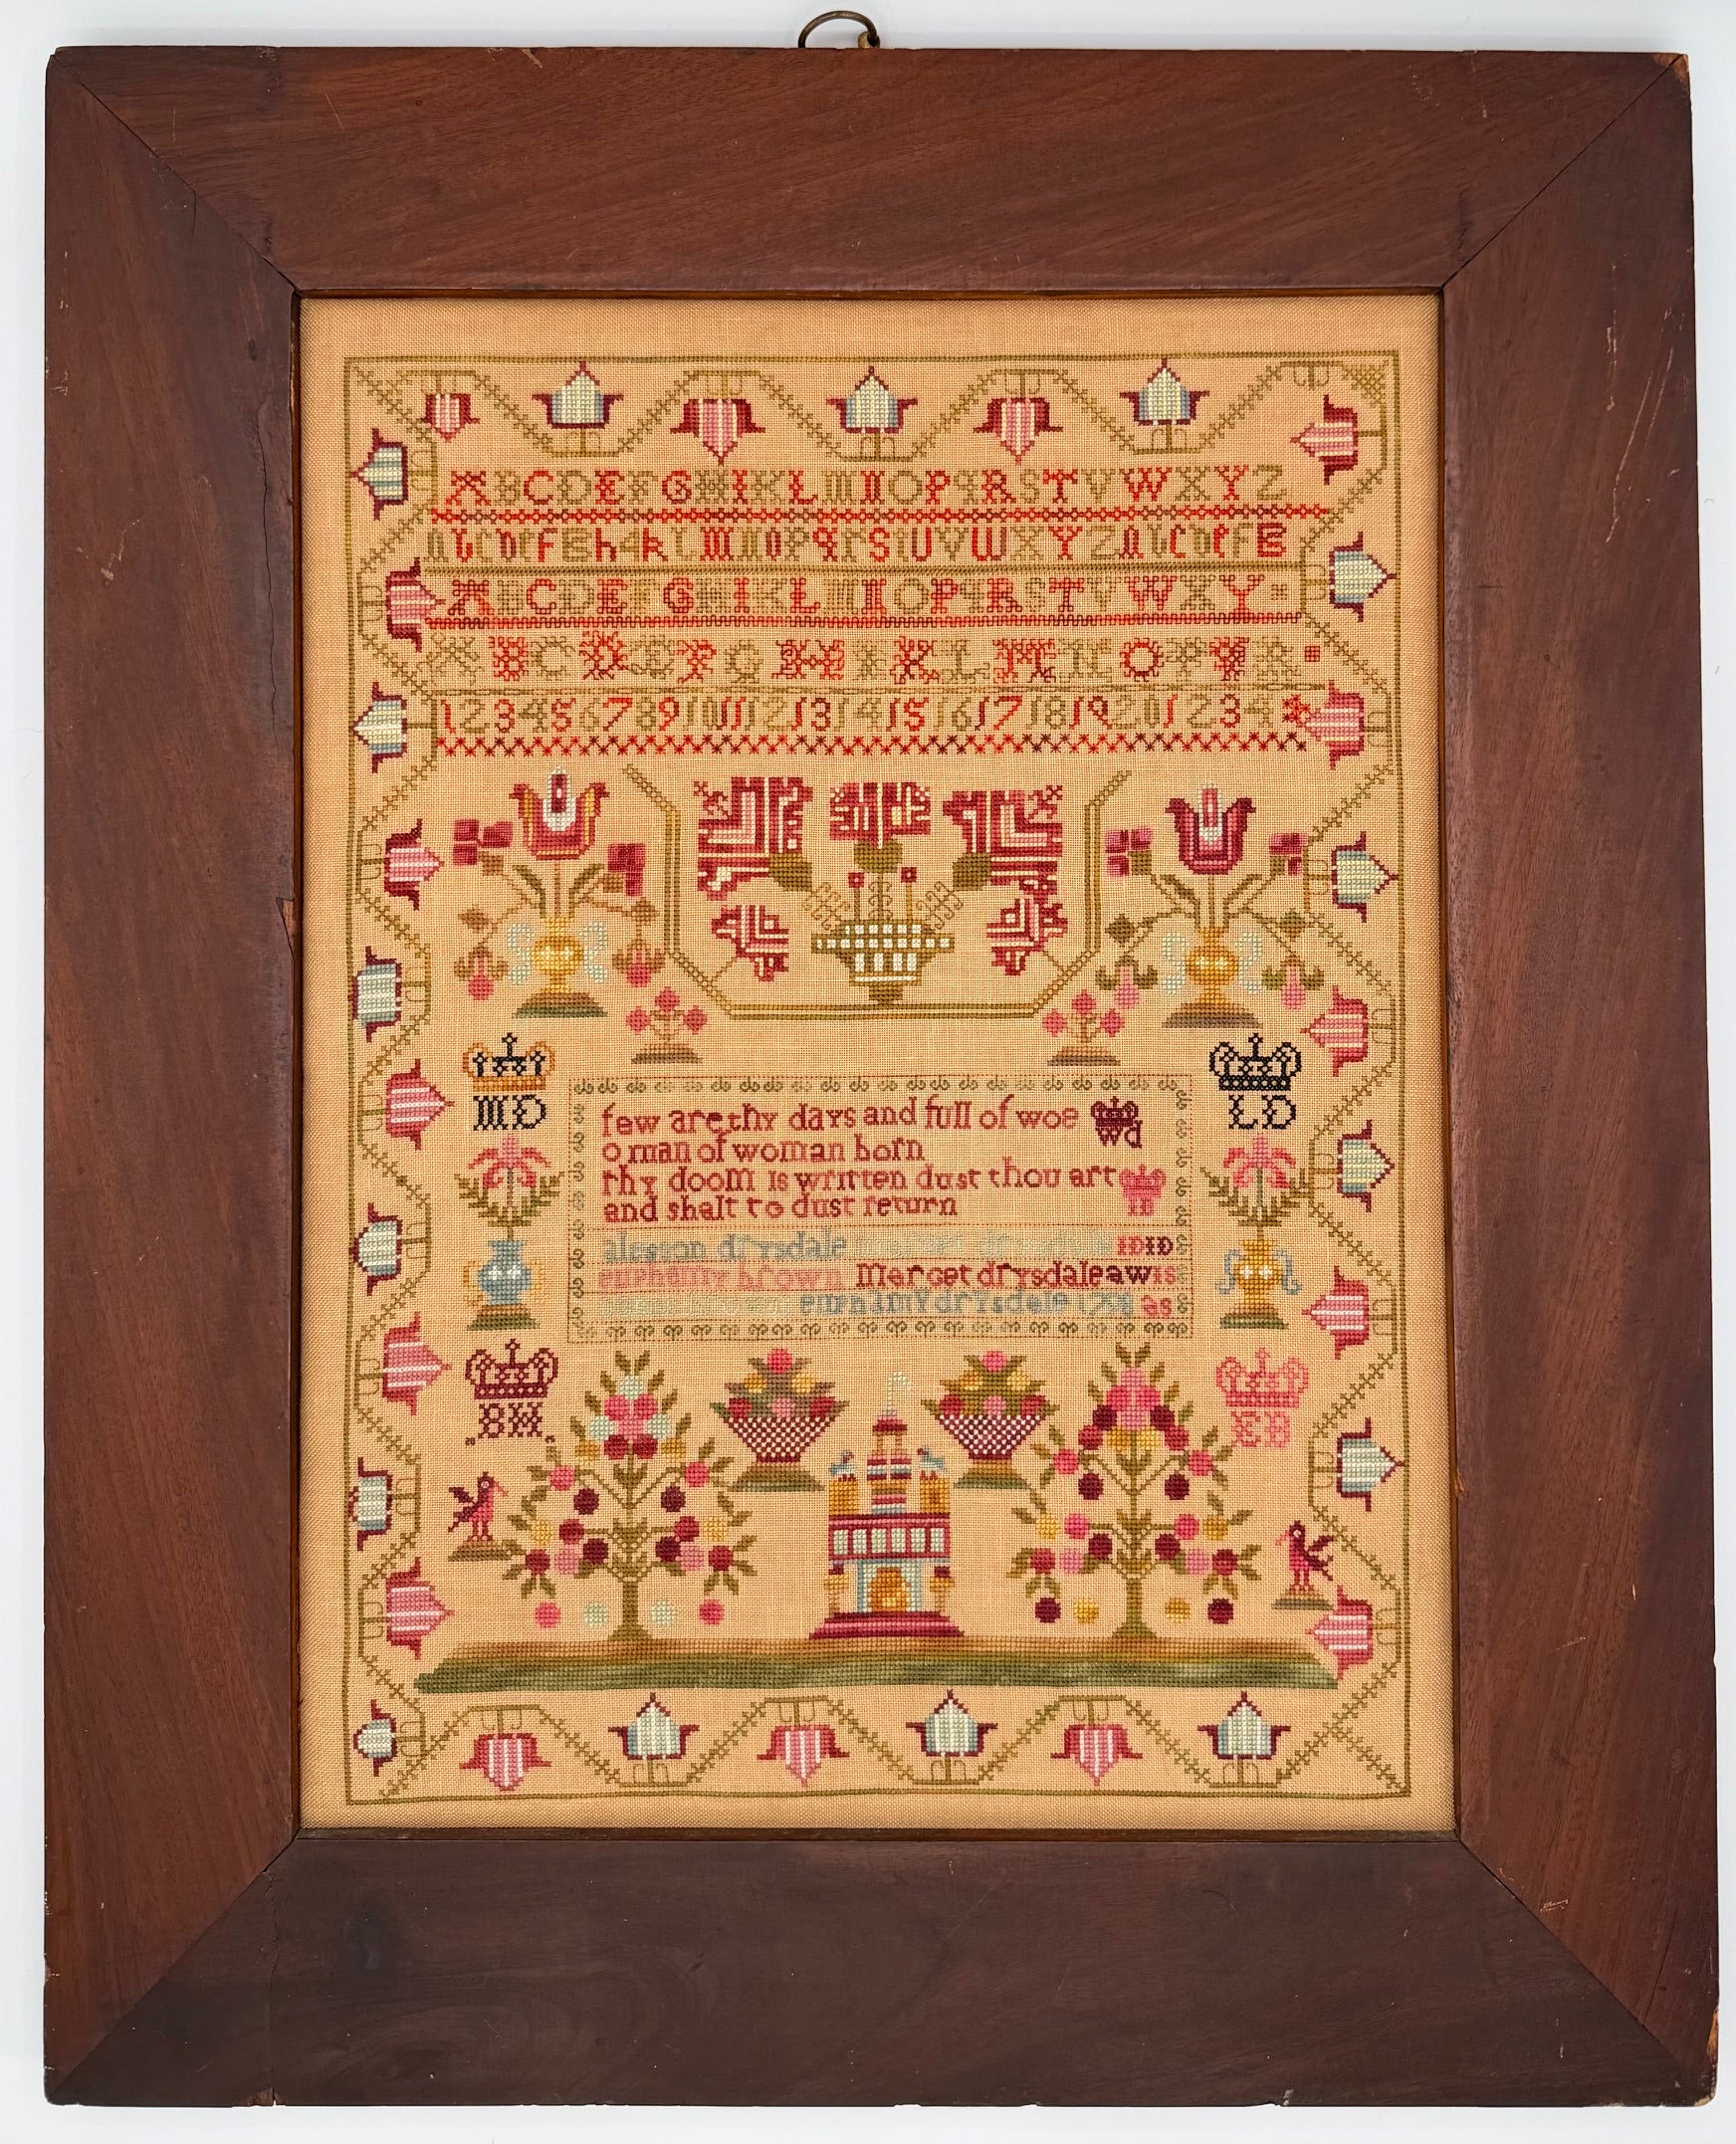 A B C D E F G H I K L M N O P Q R S T V W X Y Z
A B C D E F G H I K L M N O P Q R S T V W X Y
A B C D E F G H I K L M N O P Q R
1 2 3 4 5 6 7 8 9 10 11 12 13 14 15 16 17 18 19 20 1 2 3 4
MD LD
few are thy days and full of woe
Wd
o man of woman born
thy doom is written dust thou art
IB
and shalt to dust return
alesson drysdale drysdale IDID
euphamy brown Marget drysdale aw is
brown euphimy drysdale as
BH EB